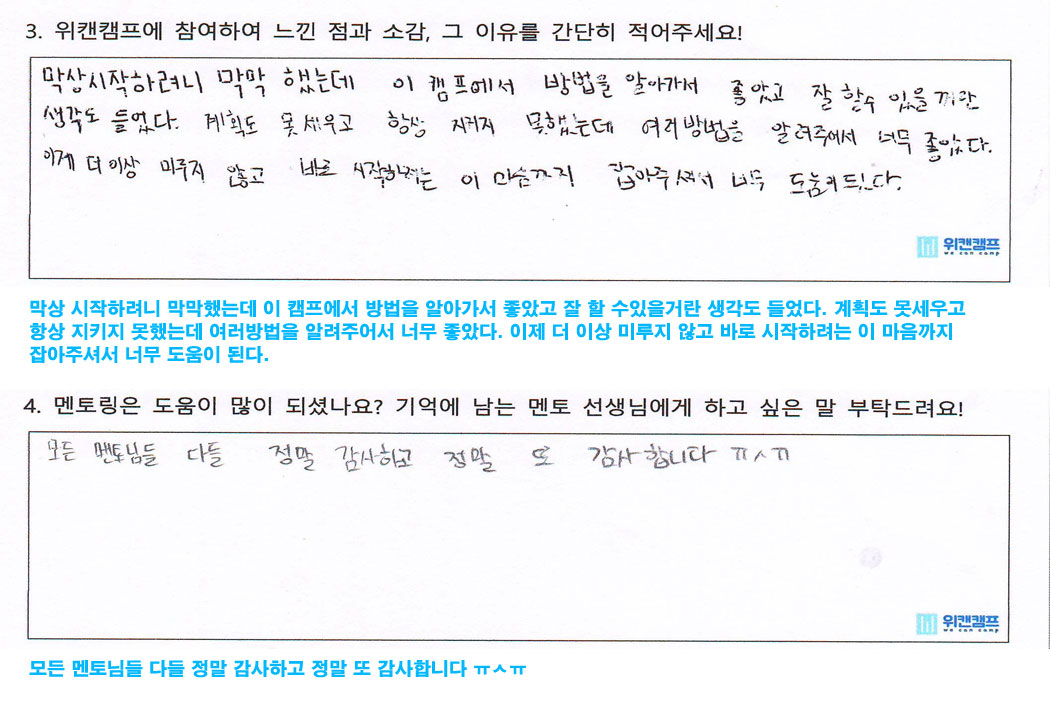 3. 위캔캠프에 참여하여 느낀 점과 소감, 그 이유를 간단히 적어주세요!
막상시작하려니 막막 했는데 이 캠프에서 방법을 알아가서 좋았고 잘 할수 있을꺼란
생각도 들었다. 계획도 못세우고 항상 지키지 못했는데 여러방법을 알려주어서 너무 좋았다.
이제 더이상 미루지 않고 바로 시작하려는 이 마음까지 잡아주셔서 너무 도움이 된다.
위캔캠프
we can camp
막상 시작하려니 막막했는데 이 캠프에서 방법을 알아가서 좋았고 잘 할 수있을거란 생각도 들었다. 계획도 못세우고
항상 지키지 못했는데 여러방법을 알려주어서 너무 좋았다. 이제 더 이상 미루지 않고 바로 시작하려는 이 마음까지
잡아주셔서 너무 도움이 된다.
4. 멘토링은 도움이 많이 되셨나요? 기억에 남는 멘토 선생님에게 하고 싶은 말 부탁드려요!
모든 멘토님들 다들 정말 감사하고 정말 또 감사합니다 ㅠㅅㅠ
위캔캠프
we can camp
모든 멘토님들 다들 정말 감사하고 정말 또 감사합니다 ㅠㅅㅠ